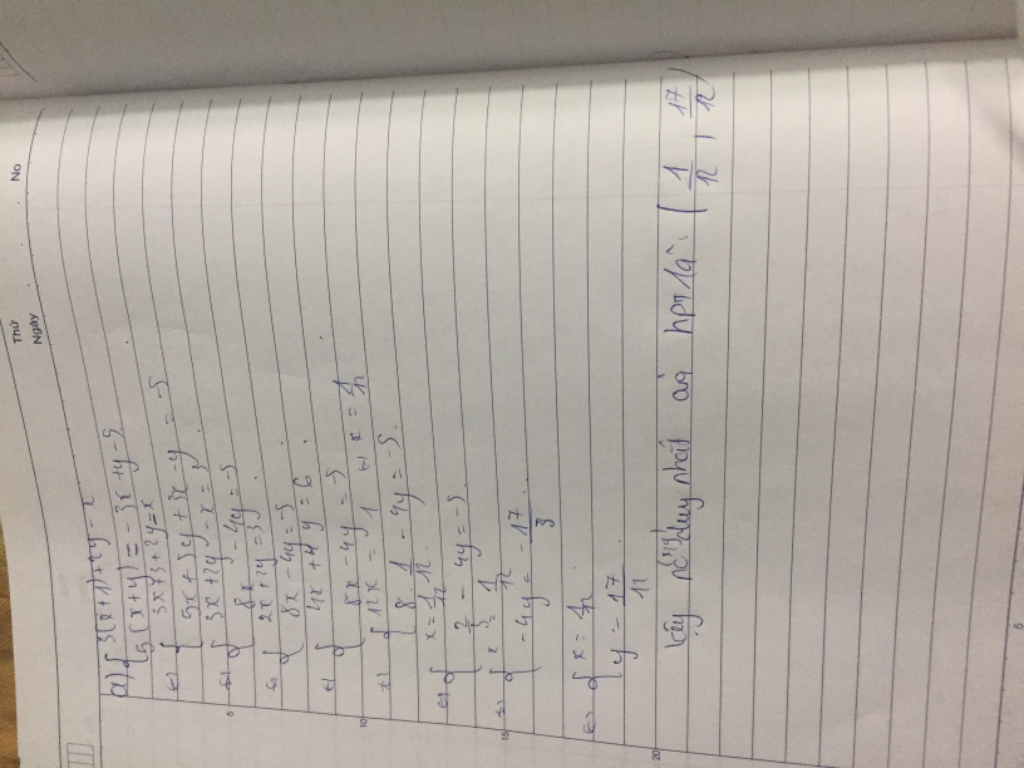 Thứ
Ngày
No
a) { 3(x+1)+2y = x
5(x+y) = -3x+y-5
<=> { 3x+3+2y=x
5x+5y+3x-y = -5
<=> { 3x+2y-x=3
8x-4y=-5
<=> { 2x+2y=3
8x-4y=-5
<=> { 4x+4y=6
8x-4y=-5
<=> { 12x=1 <=> x = 1/12
{ 8.1/12 - 4y=-5
<=> { x=1/12
2/3 - 4y=-5
<=> { x=1/12
-4y=-17/3
<=> { x=1/12
y=17/12
Vậy nghiệm duy nhất của hpt là: (1/12, 17/12)
5
10
15
20